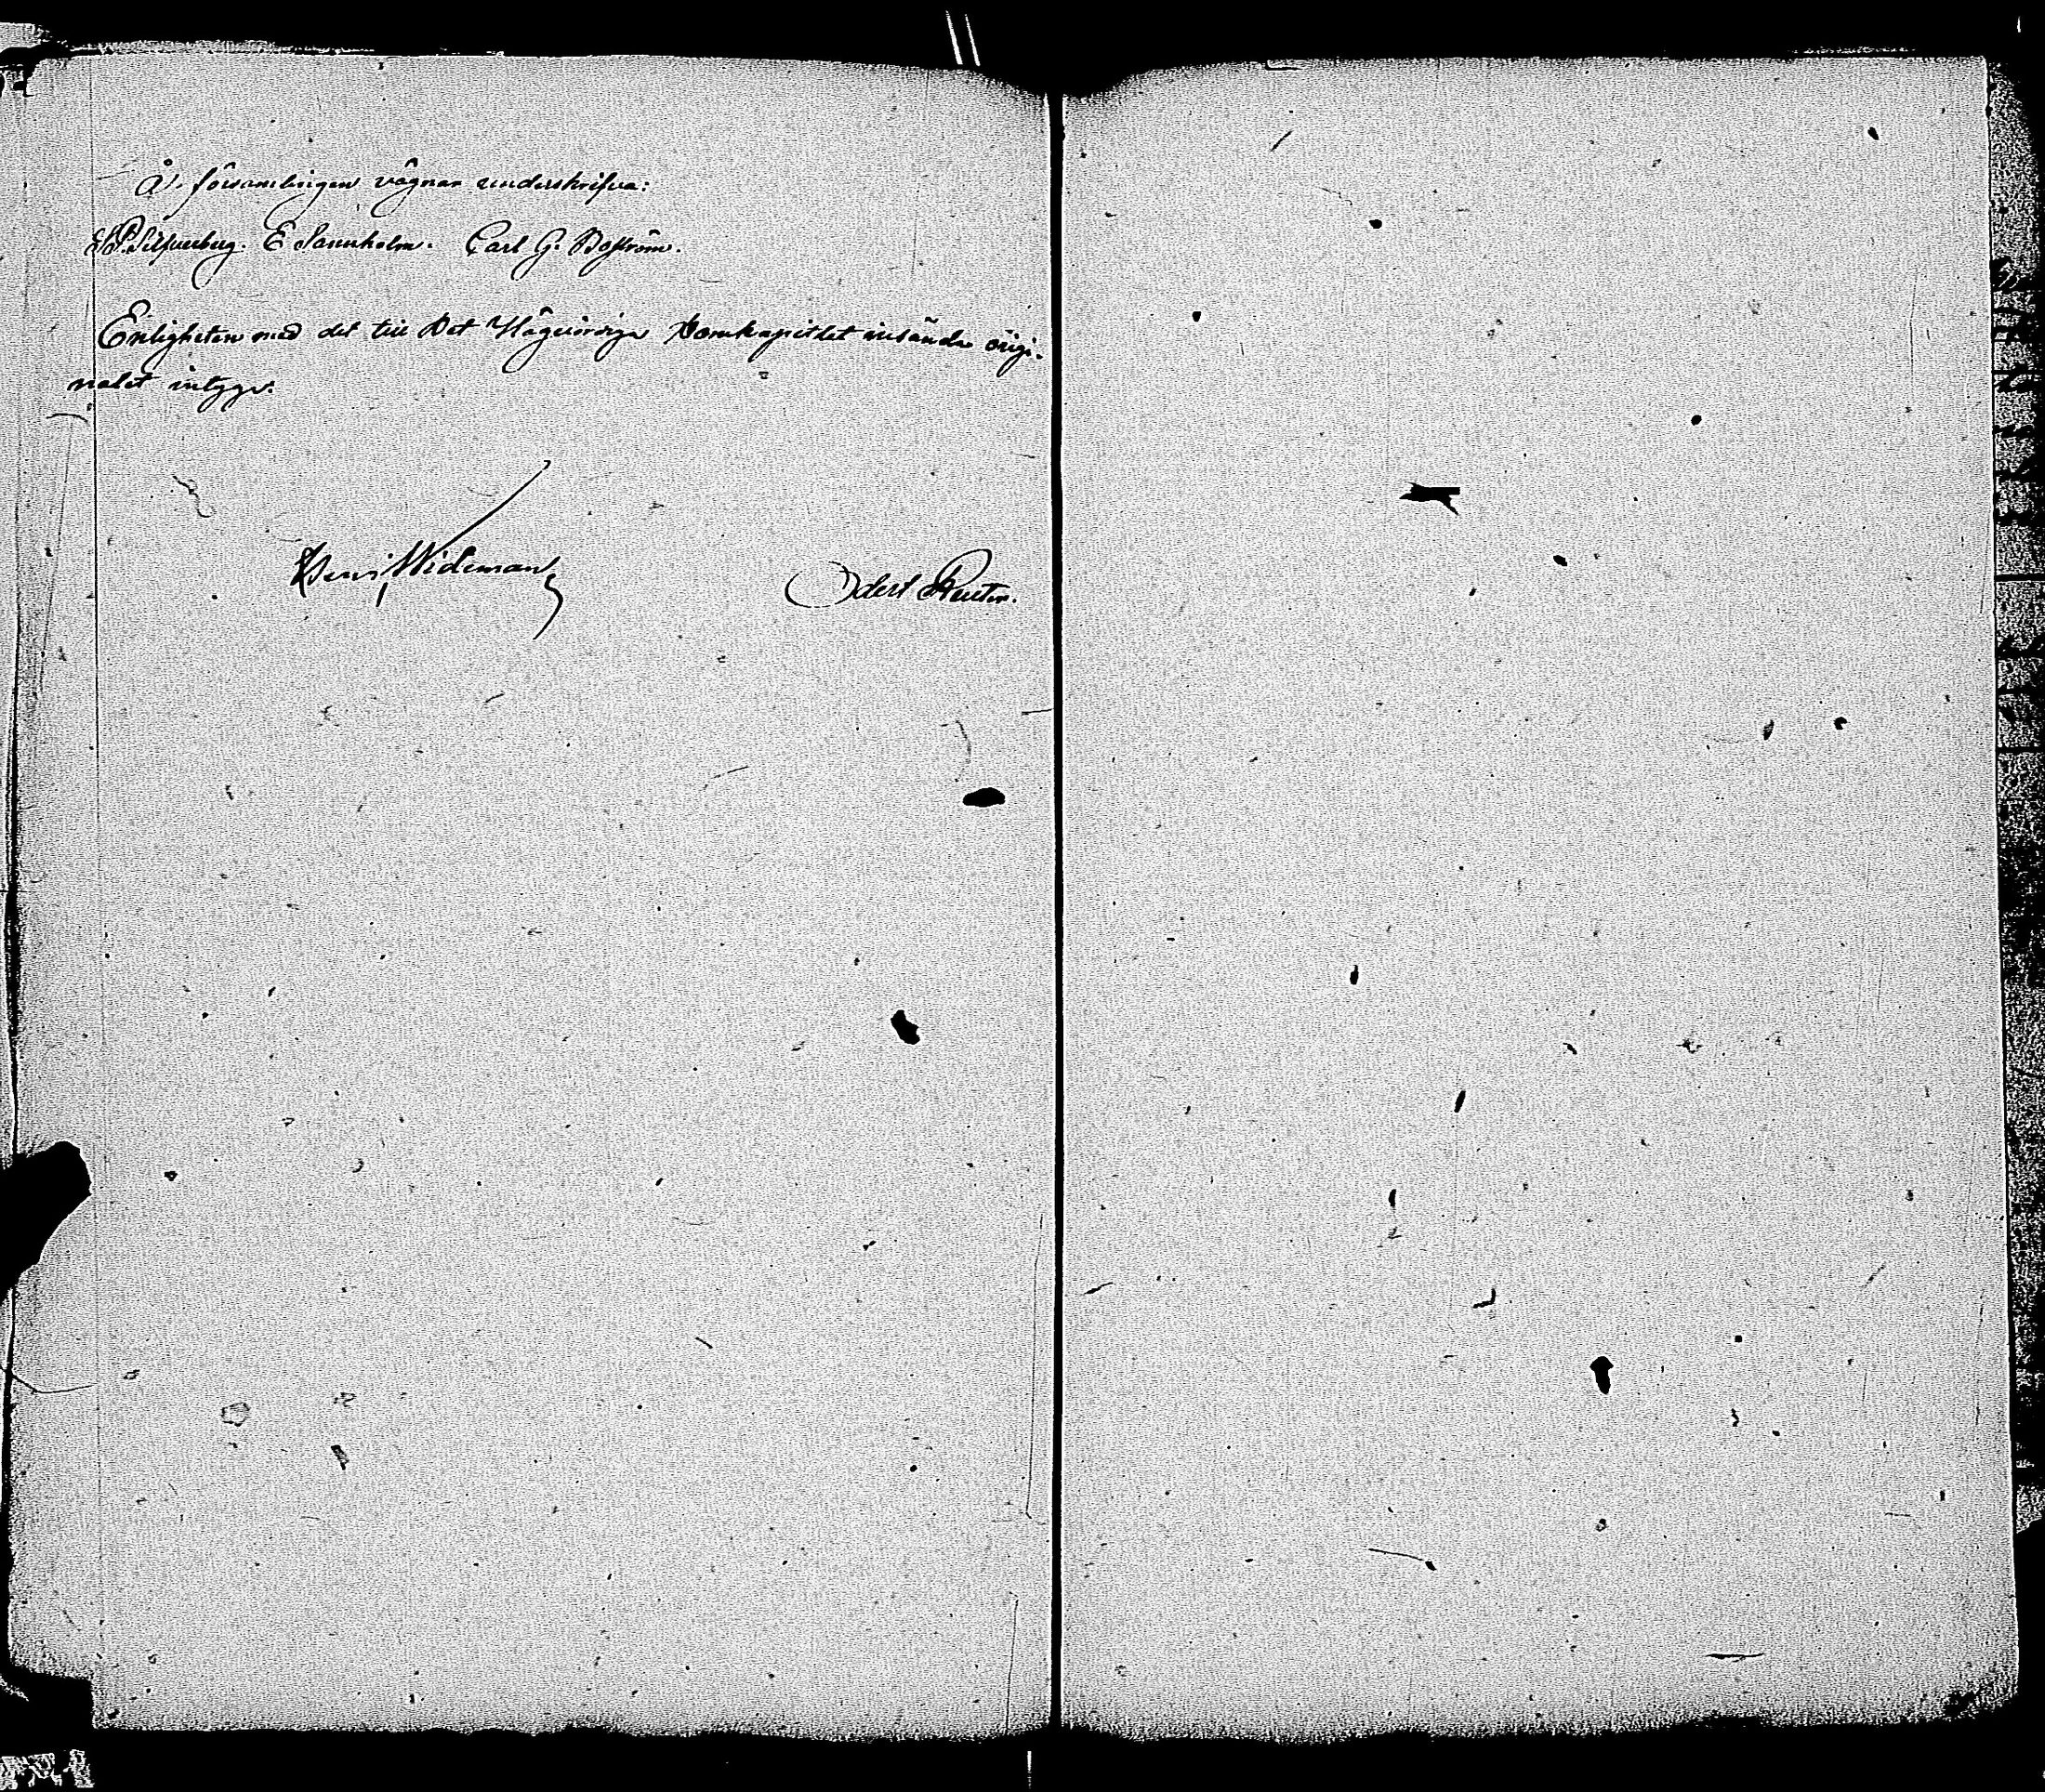 Å församlingens vägnar underskrifva:
E Sannholm. Carl G. Boström.
Enligheten med det till Det Högvördiga Domkapitlet insända origi-
nalet intyga:
Wideman
Odert Reuter.